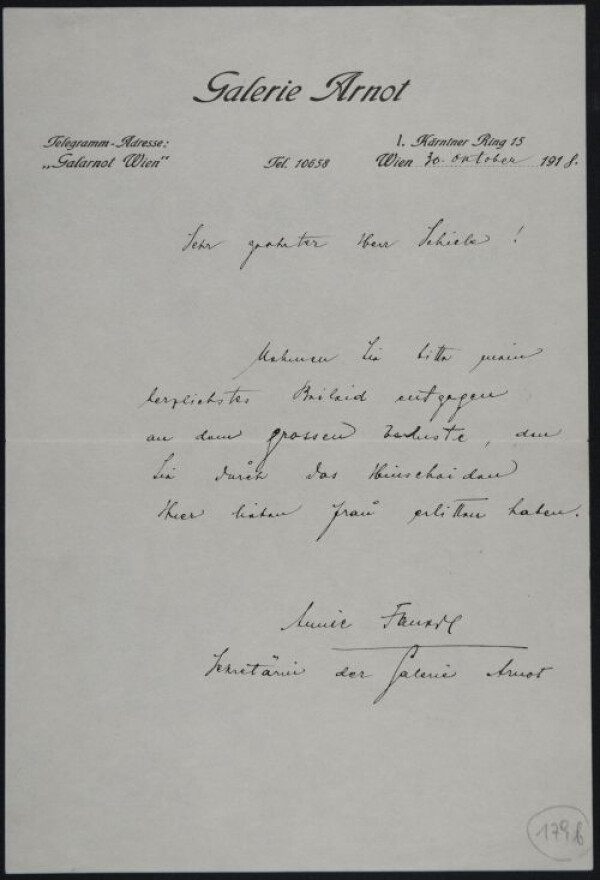 Galerie Arnot
Telegramm-Adresse:
„Galarnot Wien“
Tel. 10658
I. Kärntner Ring 15
Wien 30. Oktober 1918.
Sehr geehrter Herr Schiele!
Nehmen Sie bitte mein
herzlichstes Beileid entgegen
an dem grossen Verluste, den
Sie durch das Hinscheiden
Ihrer lieben Frau erlitten haben.
Annie
Sekretärin der Galerie Arnot
179 b